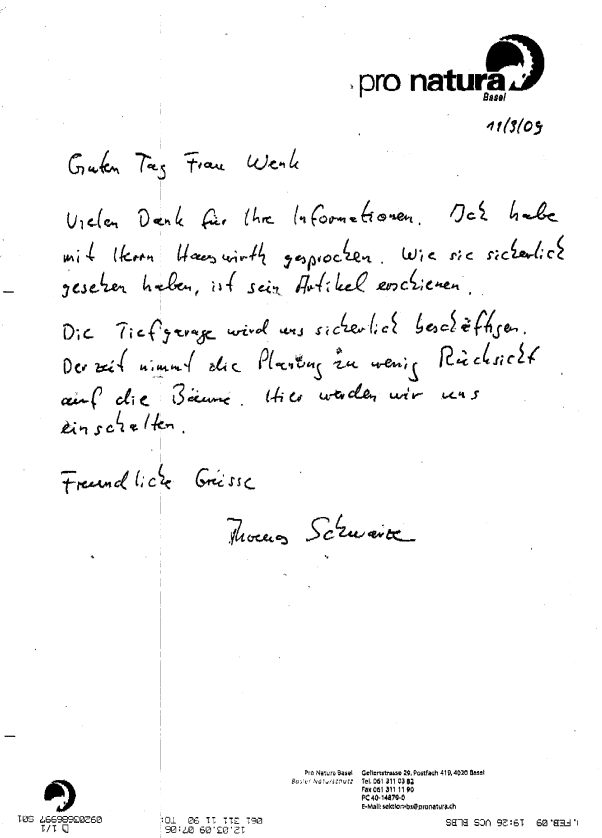 pro natura
Basel
11/3/09
Guten Tag Frau Wenk
Vielen Dank für Ihre Informationen. Ich habe
mit Herrn Hauswirth gesprochen. Wie sie sicherlich
gesehen haben, ist sein Artikel erschienen.
Die Tiefgarage wird uns sicherlich beschäftigen.
Derzeit nimmt die Planung zu wenig Rücksicht
auf die Bäume. Hier werden wir uns
einschalten.
Freundliche Grüsse
Thomas Schwarze
Pro Natura Basel Gellertstrasse 29, Postfach 419, 4020 Basel
Basler Naturschutz Tel. 061 311 03 82
Fax 061 311 11 90
PC 40-14879-0
E-Mail: sektion-bs@pronatura.ch
1. FEB. 09 19:26 VCS BLBS
061 311 11 90 TO:
12.03.09 07:06
S01
D 1/1